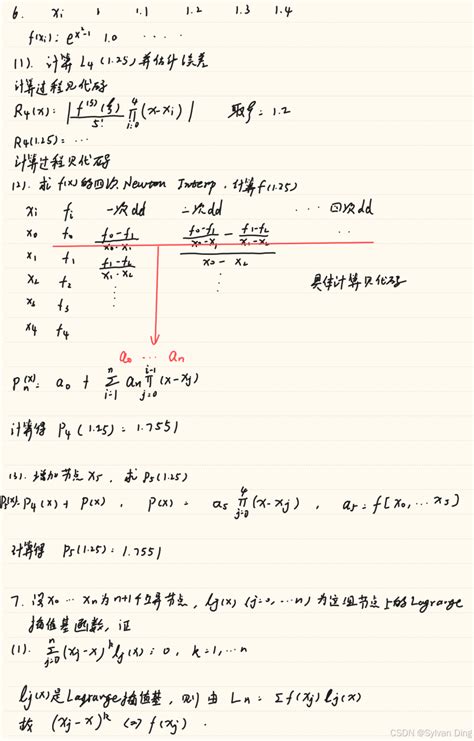 6. xi 1 1.1 1.2 1.3 1.4
f(xi): e^{x²-1} 1.0 ....
(1). 计算 L4 (1.25) 并估计误差
计算过程见代码
R4(x): | f^{(5)}(ξ) / 5! ∏_{i=0}^{4} (x-xi) | 取ξ: 1.2
R4(1.25): ...
计算过程见代码
(2). 求 f(x) 的四次 Newton Interp, 计算 f(1.25)
xi fi 一次dd 二次dd ... 四次dd
x0 f0 (f0-f1)/(x0-x1) ((f0-f1)/(x0-x1) - (f1-f2)/(x1-x2))/(x0-x2)
x1 f1 (f1-f2)/(x1-x2) ⋮
x2 f2 ⋮ 具体计算见代码
x3 f3
x4 f4
a0 ... an
Pn(x): a0 + Σ_{i=1}^{n} an ∏_{j=0}^{i-1} (x-xj)
计算得 P4 (1.25) = 1.7551
(3). 增加节点 x5, 求 P5(1.25)
P5(x): P4(x) + P(x), P(x) = a5 ∏_{j=0}^{4} (x-xj), a5 = f[x0, ... x5]
计算得 P5(1.25) = 1.7551
7. 设 x0 ... xn 为 n+1 个互异节点, lj(x) (j=0, ... n) 为这组节点上的 Lagrange
插值基函数, 证
(1). Σ_{j=0}^{n} (xj-x)^k lj(x) = 0, k=1, ... n
lj(x) 是 Lagrange 插值基, 则由 Ln = Σ f(xj) lj(x)
故 (xj-x)^k ⇔ f(xj)
CSDN @Sylvan Ding